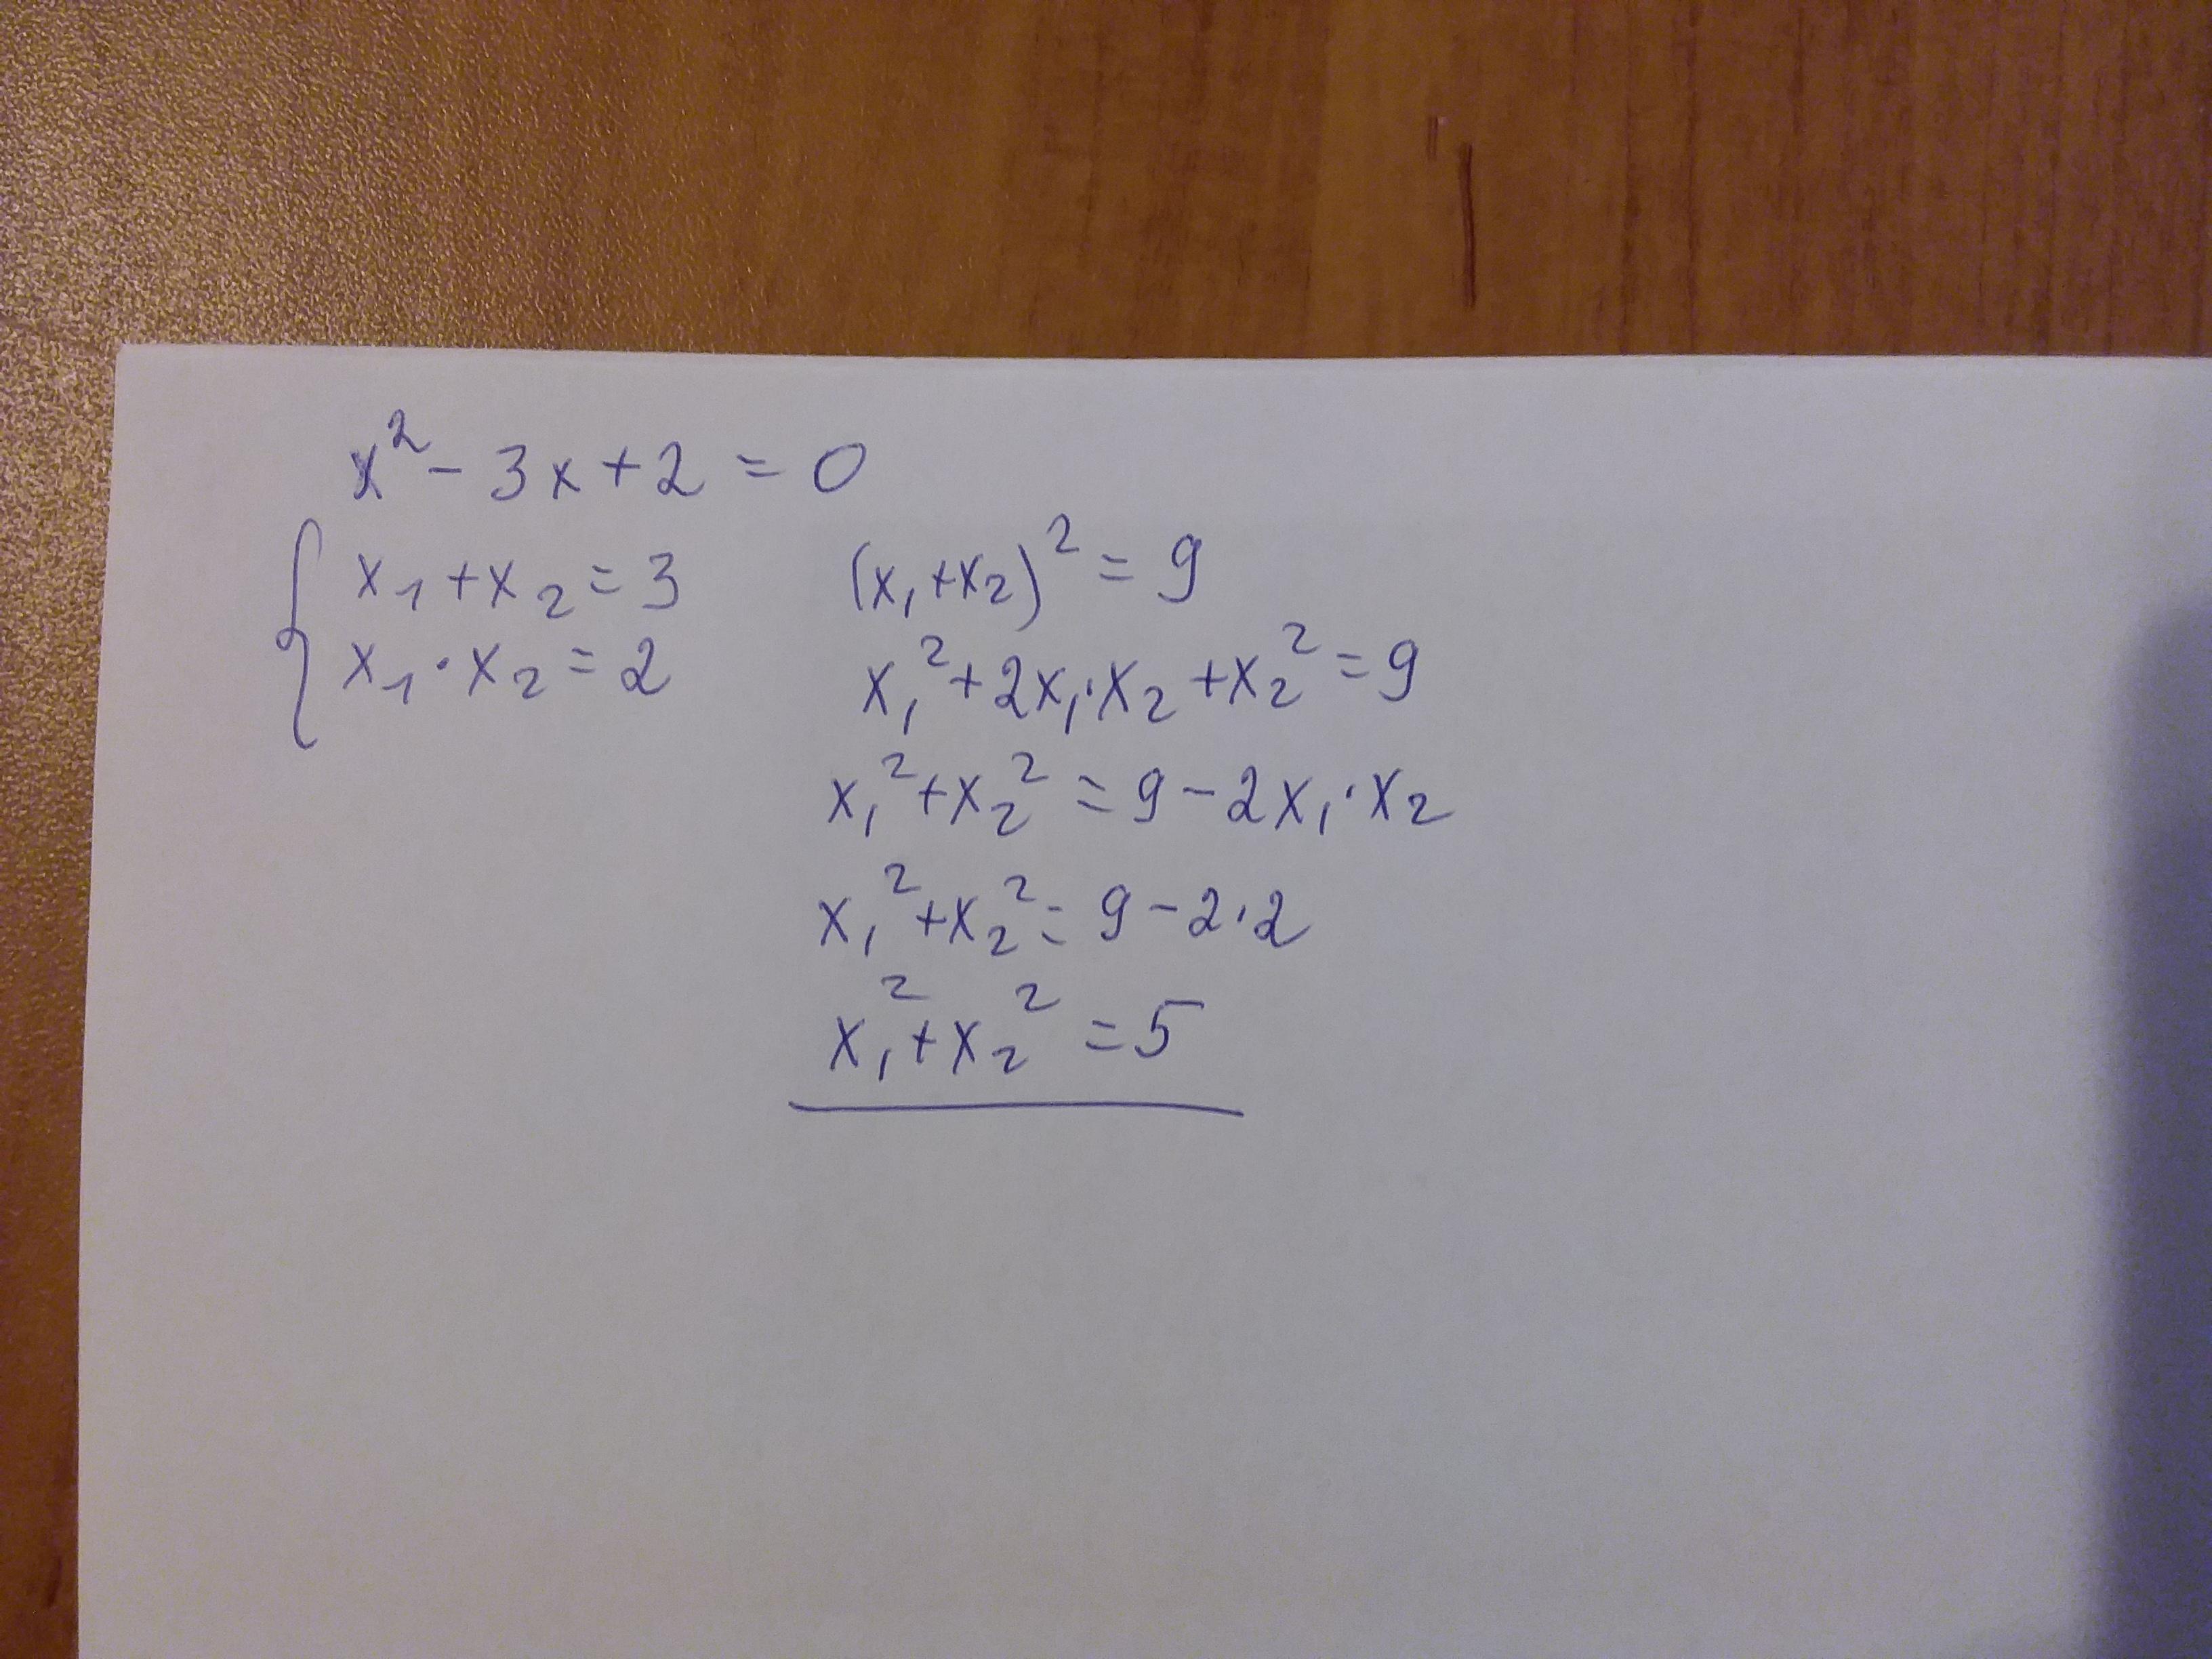 x² - 3x + 2 = 0
x₁ + x₂ = 3
x₁ · x₂ = 2
(x₁ + x₂)² = 9
x₁² + 2x₁·x₂ + x₂² = 9
x₁² + x₂² = 9 - 2x₁·x₂
x₁² + x₂² = 9 - 2·2
x₁² + x₂² = 5